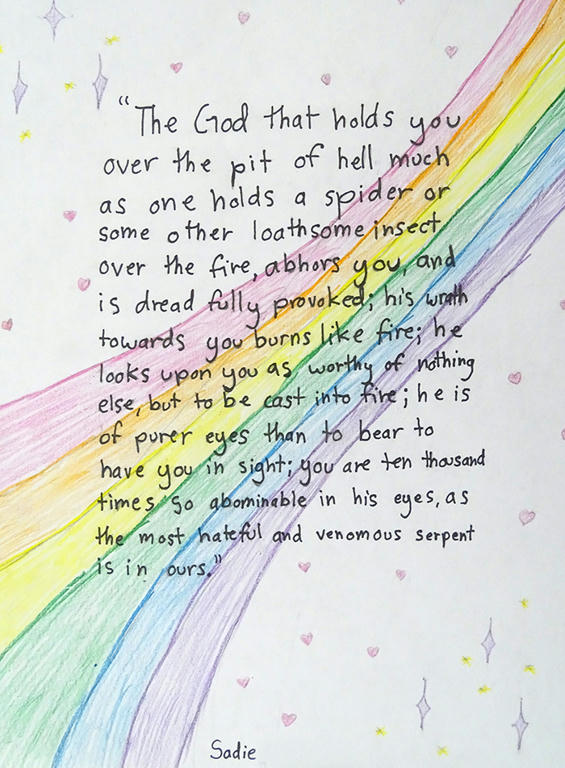 “The God that holds you
over the pit of hell much
as one holds a spider or
some other loathsome insect
over the fire, abhors you, and
is dread fully provoked; his wrath
towards you burns like fire; he
looks upon you as worthy of nothing
else, but to be cast into fire; he is
of purer eyes than to bear to
have you in sight; you are ten thousand
times so abominable in his eyes, as
the most hateful and venomous serpent
is in ours.”
Sadie